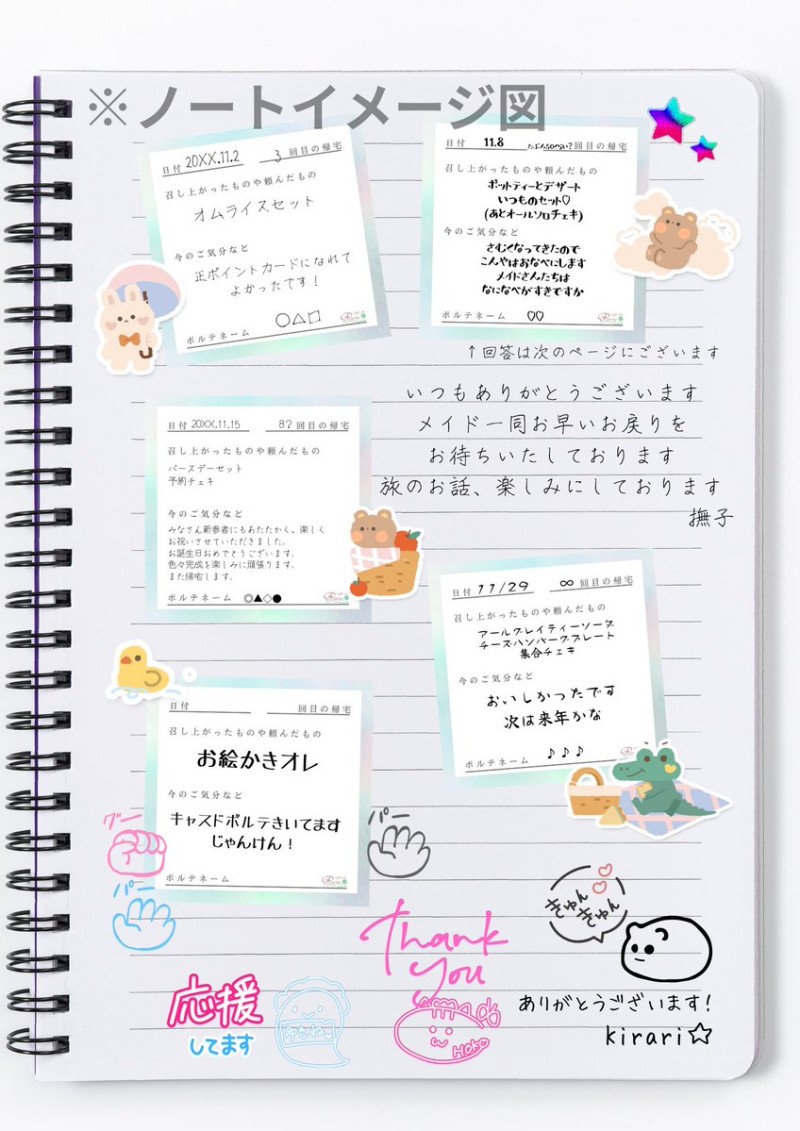 ※ノートイメージ図
日付 20XX.11.2 3 回目の帰宅
召し上がったものや頼んだもの
オムライスセット
今のご気分など
正ポイントカードになれて
よかったです！
ポルテネーム ○△□
日付 11.8 たぶん50かい？回目の帰宅
召し上がったものや頼んだもの
ポットティーとデザート
いつものセット♡
(あとオールソロチェキ)
今のご気分など
さむくなってきたので
こんやはおなべにします
メイドさんたちは
なになべがすきですか
ポルテネーム ♡♡
↑回答は次のページにございます
いつもありがとうございます
メイド一同お早いお戻りを
お待ちいたしております
旅のお話、楽しみにしております
撫子
日付 20XX.11.15 8？回目の帰宅
召し上がったものや頼んだもの
バースデーセット
予約チェキ
今のご気分など
みなさん新参者にもあたたかく、楽しく
お祝いさせていただきました。
お誕生日おめでとうございます。
色々完成を楽しみに頑張ります。
また帰宅します。
ポルテネーム ◎▲◇●
日付 11/29 ∞ 回目の帰宅
召し上がったものや頼んだもの
アールグレイティーソーダ
チーズハンバーグプレート
集合チェキ
今のご気分など
おいしかったです
次は来年かな
ポルテネーム ♪♪♪
日付 回目の帰宅
召し上がったものや頼んだもの
お絵かきオレ
今のご気分など
キャスドポルテきいてます
じゃんけん！
ポルテネーム
グー
パー
パー
きゅん
きゅん
Thank
you
応援
してます
HOKO
ありがとうございます！
kirari☆